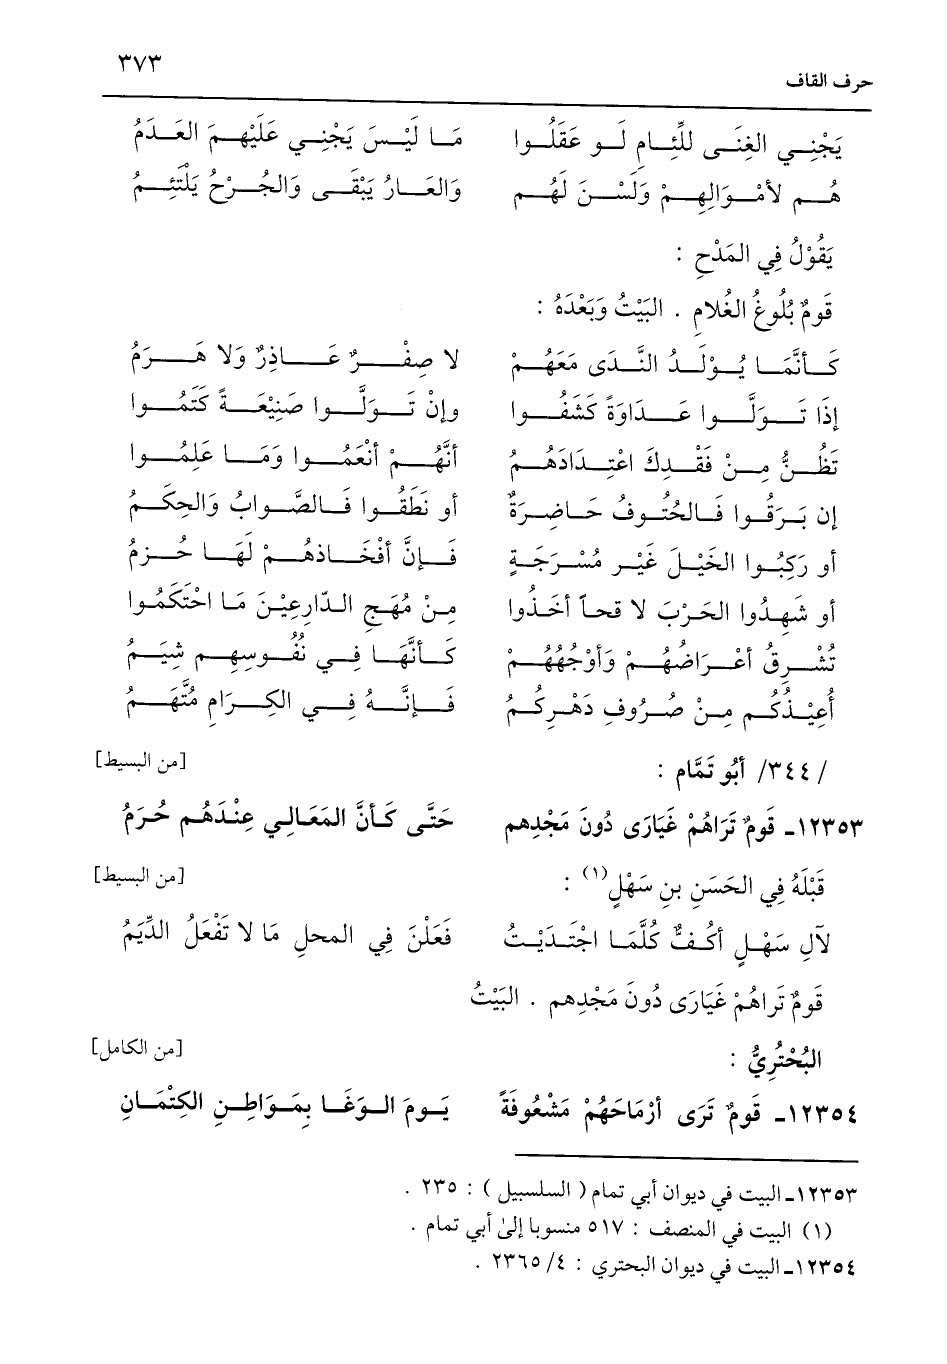 ٣٧٣
حرف القاف
يَجْنِي الغِنَى للِّئِامِ لَو عَقَلُوا مَا لَيْسَ يَجْنِي عَلَيْهِمَ العَدَمُ
هُم لأمْوَالِهِمْ وَلَسْنَ لَهُم وَالعَارُ يَبْقَى وَالجُرْحُ يَلْتَئِمُ
يَقُوْلُ فِي المَدْحِ :
قَومٌ بُلُوغُ الغُلامِ . البَيْتُ وَبَعْدَهُ :
كَأنَّمَا يُوْلَدُ النَّدَى مَعَهُمْ لا صِغْرٌ عَاذِرٌ وَلا هَرَمُ
إذَا تَوَلَّوا عَدَاوَةً كَشَفُوا وإنْ تَوَلَّوا صَنِيْعَةً كَتَمُوا
تَظُنُّ مِنْ فَقْدِكَ اعْتِدَادَهُمُ أنَّهُمْ أنْعَمُوا وَمَا عَلِمُوا
إن بَرَقُوا فَالحُتُوفُ حَاضِرَةٌ أو نَطَقُوا فَالصَّوابُ وَالحِكَمُ
أو رَكِبُوا الخَيْلَ غَيْر مُسْرَجَةٍ فَإنَّ أفْخَاذهُمْ لَهَا حُزمُ
أو شَهِدُوا الحَرْبَ لا قحاً أخَذُوا مِنْ مُهَجِ الدّارِعِيْنَ مَا احْتَكَمُوا
تُشْرِقُ أعْرَاضُهُمْ وَأوْجُهُهُمْ كَأنَّهَا فِي نُفُوسِهِم شِيَمُ
أُعِيْذُكُم مِنْ صُرُوفِ دَهْرِكُمُ فَإنَّهُ فِي الكِرَامِ مُتَّهَمُ
/ ٣٤٤/ أبُو تَمَّام : [من البسيط]
١٢٣٥٣ـ قَومٌ تَرَاهُمْ غَيَارَى دُونَ مَجْدِهم حَتَّى كَأنَّ المَعَالِي عِنْدَهُم حُرَمُ
قَبْلَهُ فِي الحَسَنِ بنِ سَهْلٍ(١) : [من البسيط]
لآلِ سَهْلٍ أكُفٌّ كُلَّمَا اجْتَدَيْتُ فَعَلْنَ فِي المحلِ مَا لا تَفْعَلُ الدِّيَمُ
قَومٌ تَراهُمْ غَيَارَى دُونَ مَجْدِهم . البَيْتُ
البُحْتُرِيُّ : [من الكامل]
١٢٣٥٤ـ قَومٌ تَرَى أرْمَاحَهُمْ مَشْعُوفَةً يَومَ الوَغَا بِمَوَاطِنِ الكِتْمَانِ
١٢٣٥٣ـ البيت في ديوان أبي تمام ( السلسبيل ) : ٢٣٥ .
(١) البيت في المنصف : ٥١٧ منسوبا إلىٰ أبي تمام .
١٢٣٥٤ـ البيت في ديوان البحتري : ٤/ ٢٣٦٥ .